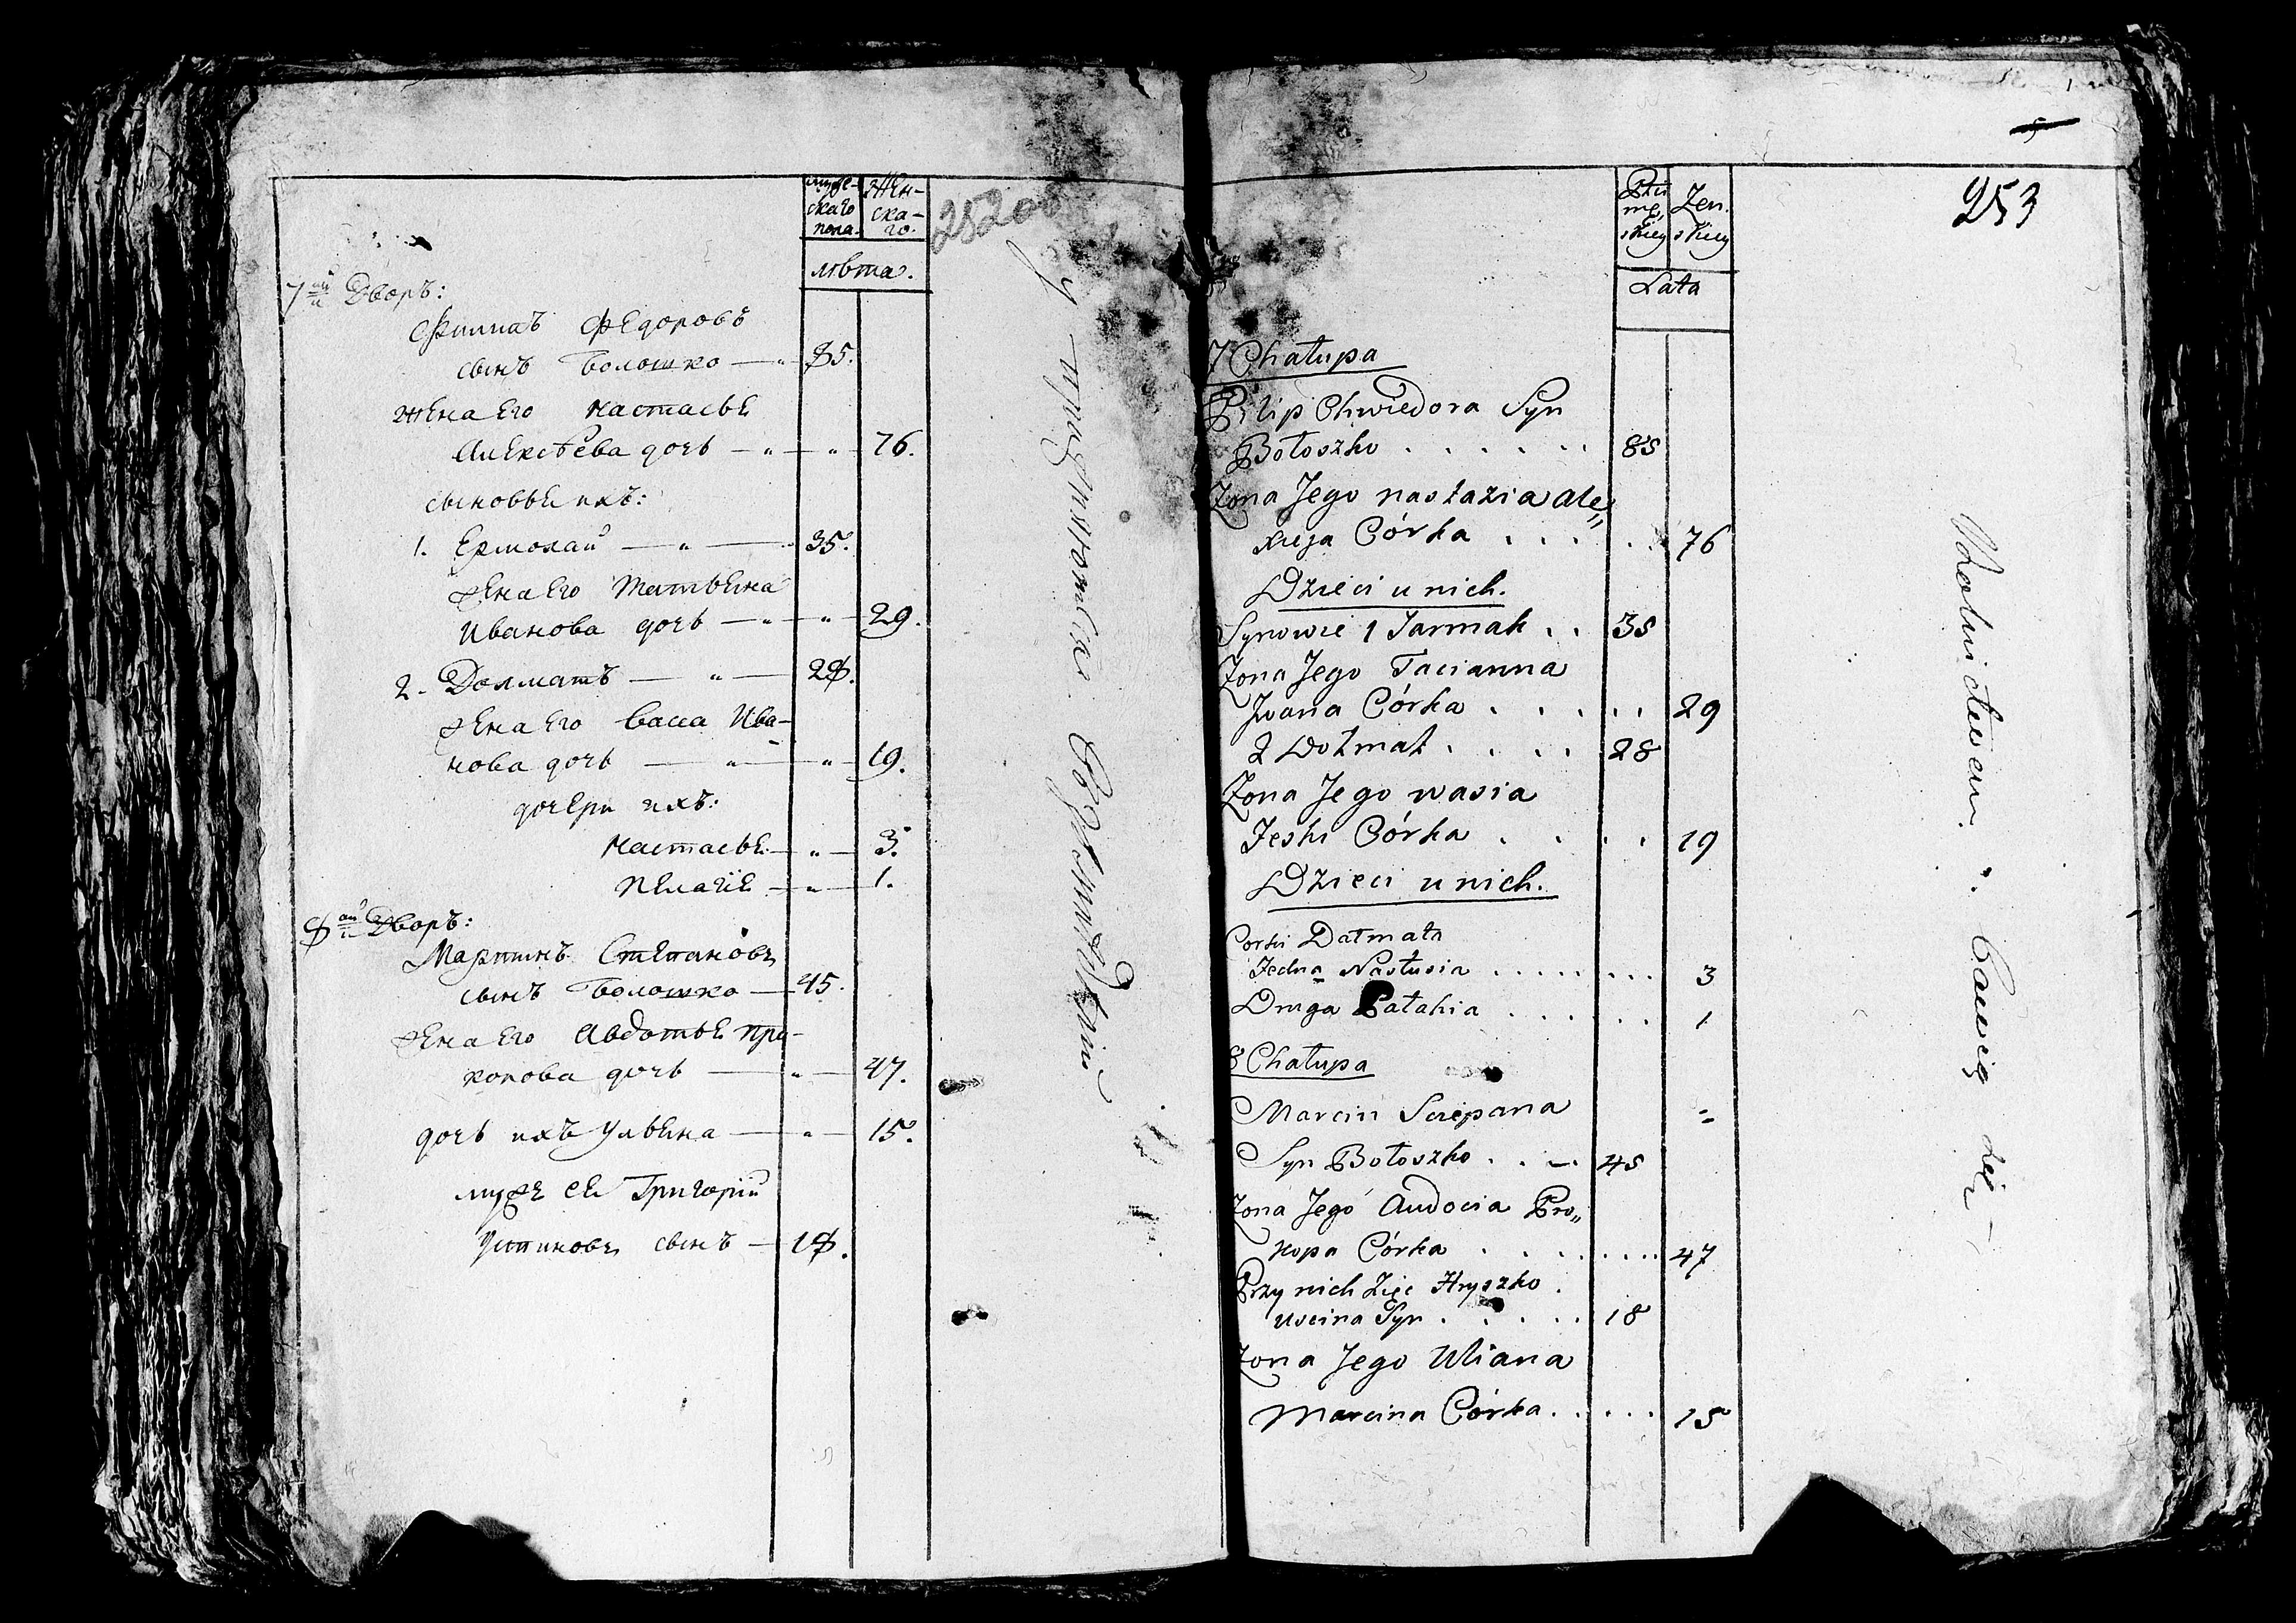 муже-
скаго
пола.
жен-
ска-
го.
лѣта.
252 об
7ый Дворъ:
Филипъ Федоровъ
сынъ Болошко — 85.
жена Его настасье
Алексѣева дочь — 76.
сыновье ихъ:
1. Ермолай — 35.
жена Его Татьеяна
Иванова дочь — 29.
2. Долматъ — 28.
жена Его Васса Ива-
нова дочь — 19.
дочери ихъ:
Настасье — 3.
Пелагіе — 1.
8ый Дворъ:
Мартинъ Степановъ
сынъ Болошко — 45.
жена Его Авдотье Про-
копова дочь — 47.
дочь ихъ Ульеяна — 15.
муже ее Григорій
Устиновъ сынъ — 18.
5
253
Płci
mę,
skiey
Żen.
skiey
Lata
7 Chałupa
Pilip Chwiedora Syn
Bołoszko . . . . . . 85
Żona Jego nastazia ale„
xieja Córka . . . . . 76
Dzieci u nich.
Synowie 1 Jarmak . . 35
Żona Jego Tacianna
Jwana Córka . . . . . 29
2 Dołmat . . . . 28
Żona Jego wasia
Jeśki Córka . . . . 19
Dzieci u nich.
Corki Dałmata
Jedna Nastusia . . . . . . . . 3
Druga Pałahia . . . . . . 1
8 Chałupa
Marcin Sciepana
Syn Bołoszko . . – . 45
Żona Jego Audocia Pro„
kopa Córka . . . . . . . . 47
Przy nich Zięć Hryszko .
uscina Syn . . . . . 18
Żona Jego Uliana
Marcina Córka . . . . . 15